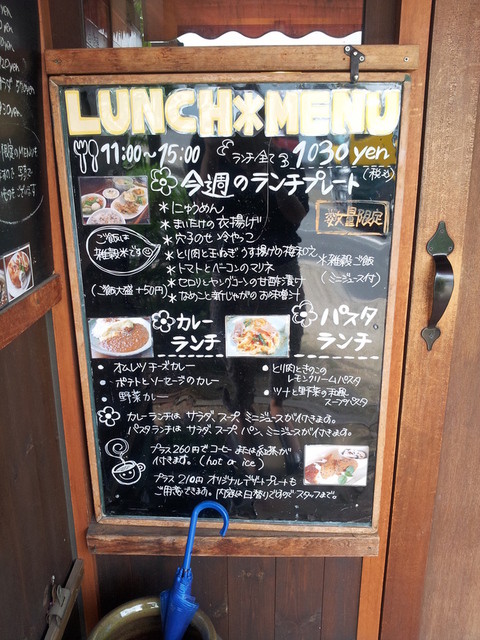 LUNCH＊MENU
11:00〜15:00
ランチ全て 1030yen
(税込)
今週のランチプレート
数量限定
＊にゅうめん
＊まいたけの衣揚げ
＊穴子のせ冷やっこ
＊とり肉と玉ねぎうす揚げの
＊トマトとベーコンのマリネ
＊セロリとヤングコーンの甘酢漬け
＊なめこと新じゃがのお味噌汁
＊雑穀ご飯
(ミニジュース付)
ご飯は
雑穀米です
(ご飯大盛+50円)
カレー
ランチ
・オムレツチーズカレー
・ポテトとソーセージのカレー
・野菜カレー
パスタ
ランチ
・とり肉ときのこの
レモンクリームパスタ
・ツナと野菜の和風
スープパスタ
カレーランチは サラダ、スープ、ミニジュースが付きます。
パスタランチは サラダ、スープ、パン、ミニジュースが付きます。
プラス260円でコーヒーまたは紅茶が
付きます。(hot or ice)
プラス210円 オリジナルデザートプレートも
ご用意できます。内容は日替りですのでスタッフまで。